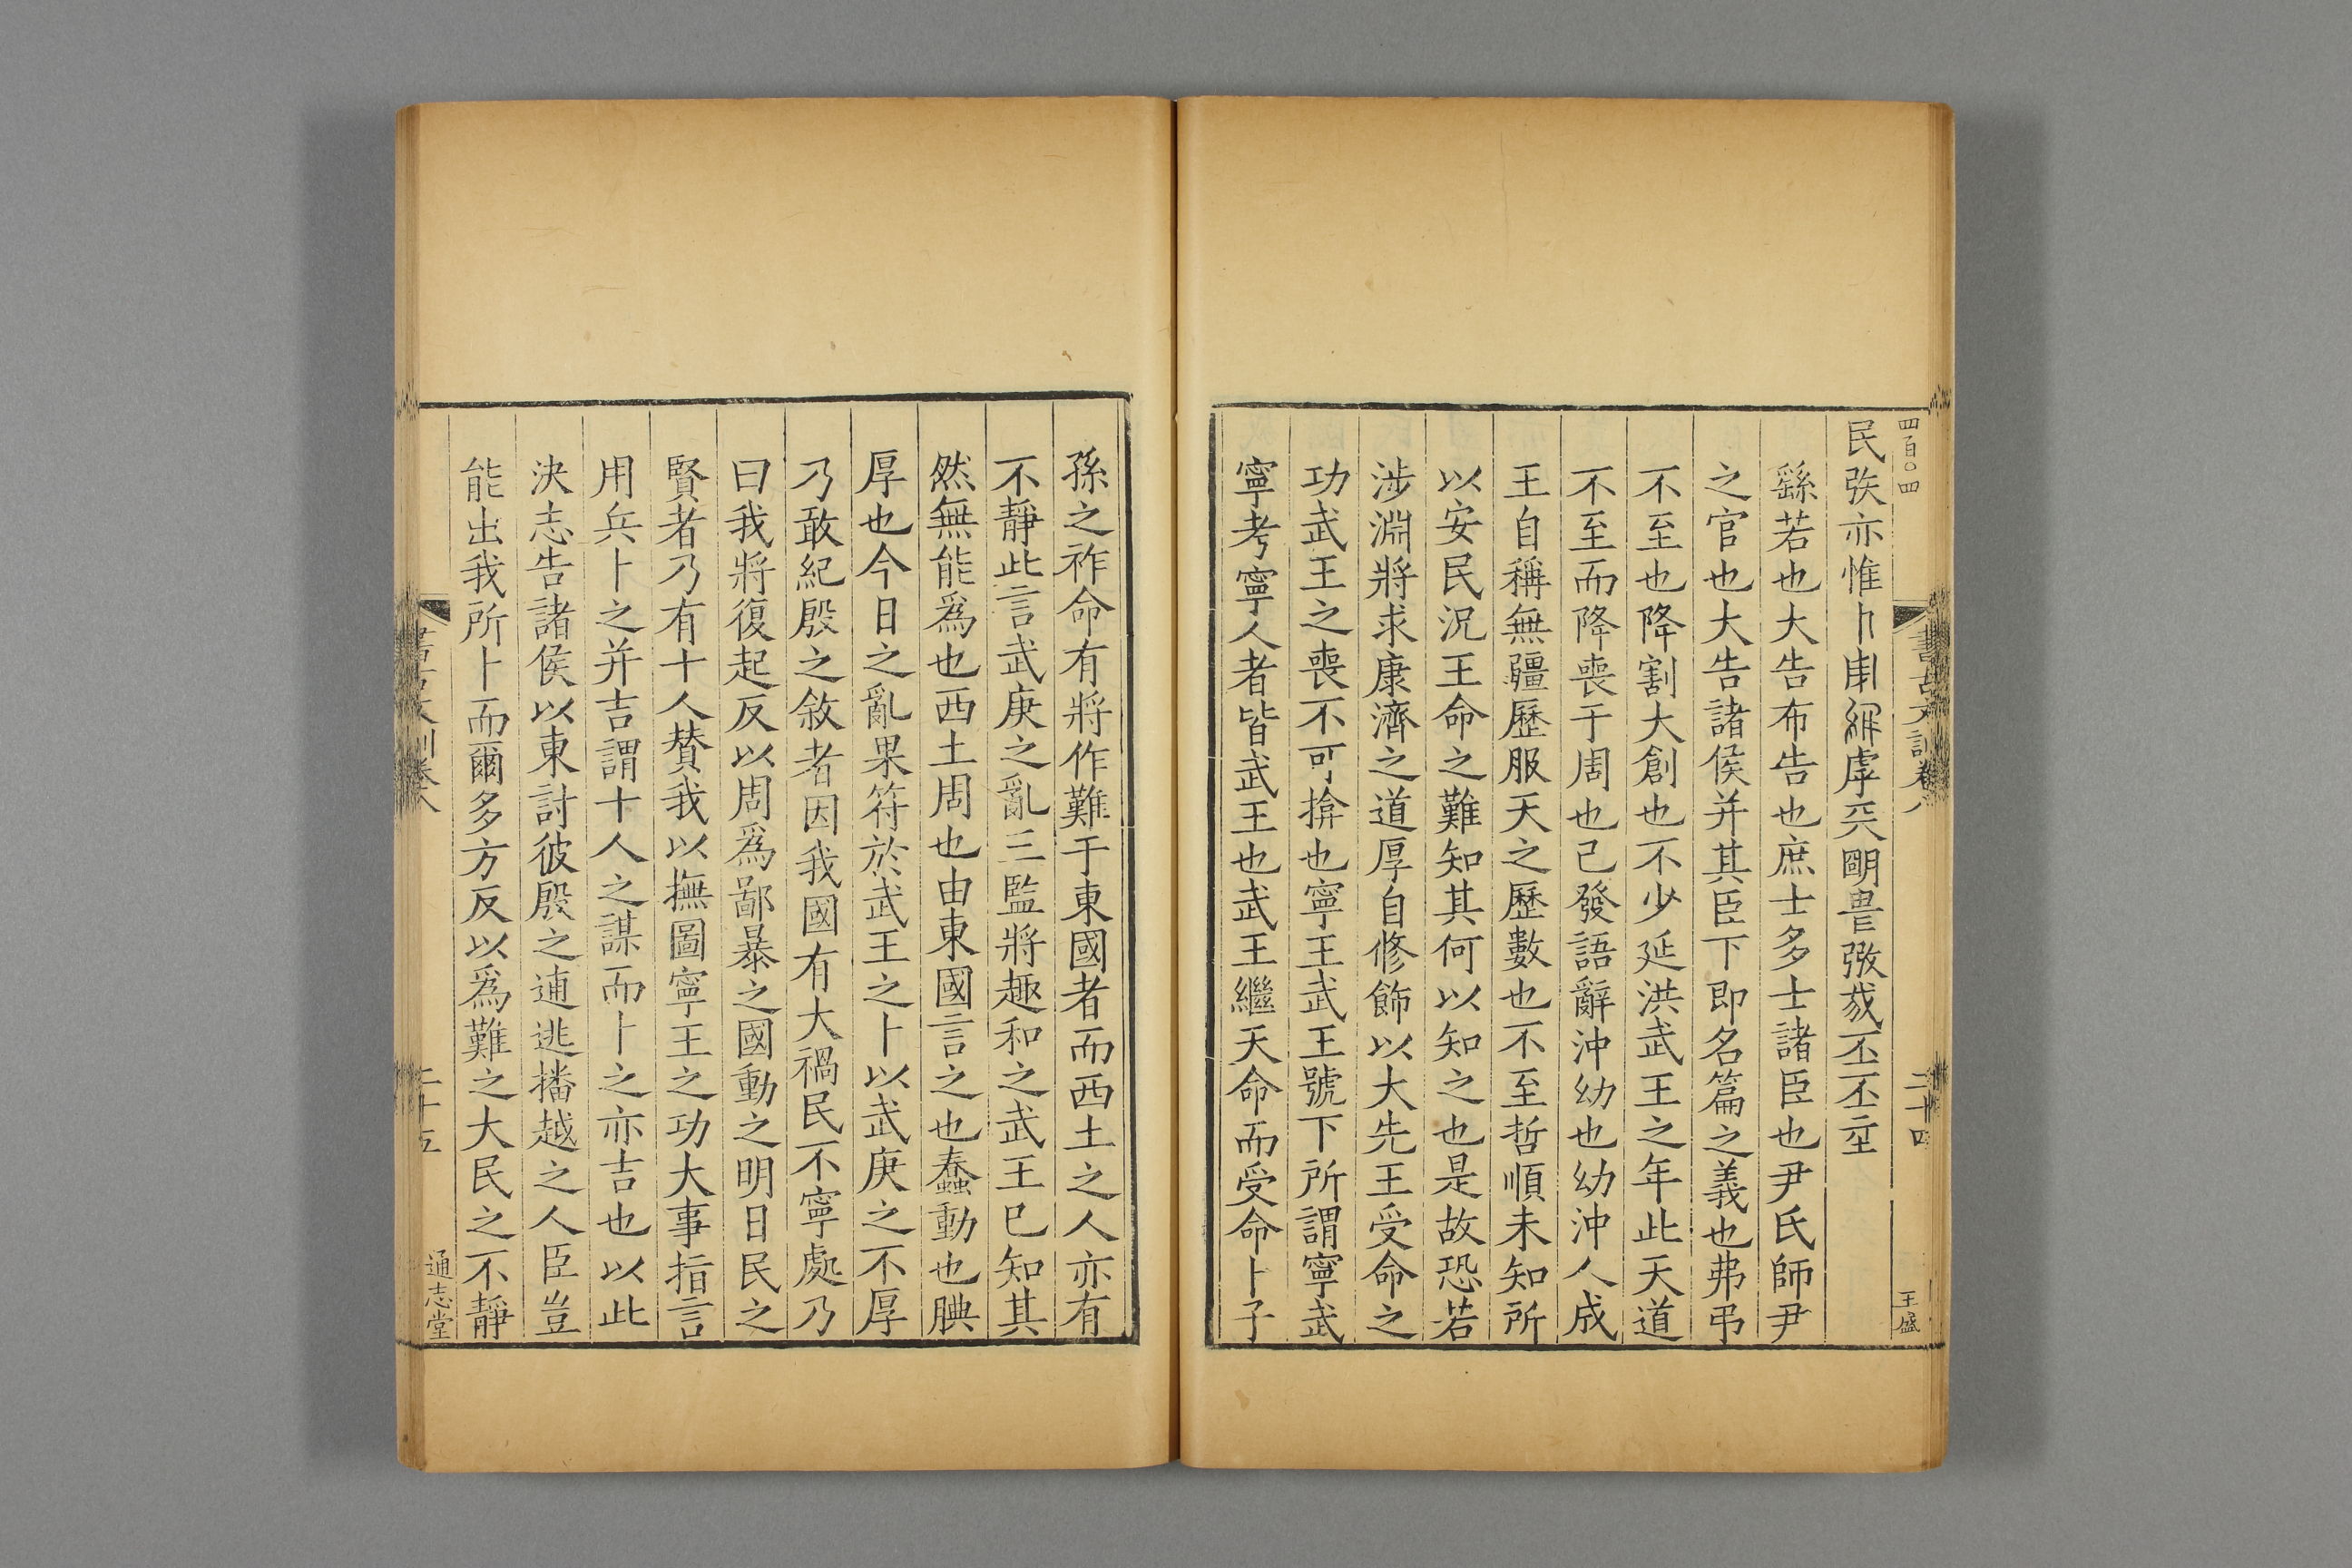 四百〇四
書古文訓卷八
二十四
王盛
民亦惟卜丕丕
繇若也大告布告也庶士多士諸臣也尹氏師尹
之官也大告諸侯并其臣下即名篇之義也弗弔
不至也降割大創也不少延洪武王之年此天道
不至而降喪于周也已發語辭沖幼也幼沖人成
王自稱無疆歷服天之歷數也不至哲順未知所
以安民況王命之難知其何以知之也是故恐若
涉淵將求康濟之道厚自修飾以大先王受命之
功武王之喪不可揜也寧王武王號下所謂寧武
寧考寧人者皆武王也武王繼天命而受命卜子
孫之祚命有將作難于東國者而西土之人亦有
不靜此言武庚之亂三監將趣和之武王已知其
然無能爲也西土周也由東國言之也蠢動也腆
厚也今日之亂果符於武王之卜以武庚之不厚
乃敢紀殷之敘者因我國有大禍民不寧處乃
曰我將復起反以周爲鄙暴之國動之明日民之
賢者乃有十人賛我以撫圖寧王之功大事指言
用兵卜之并吉謂十人之謀而卜之亦吉也以此
決志告諸侯以東討彼殷之逋逃播越之人臣豈
能出我所卜而爾多方反以爲難之大民之不靜
書古文訓卷八
二十五
通志堂